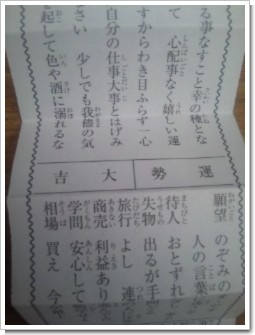 る事なすこと幸の種とな
て 心配事なく嬉しい運
すからわき目ふらず一心
自分の仕事大事とはげみ
さい 少しでも我儘の気
起して色や酒に溺れるな
運勢 大吉
願望 のぞみの
人の言葉
待人 おとずれ
失物 出るが手
旅行 よし 連
商売 利益あり
学問 安心して
相場 買え 今